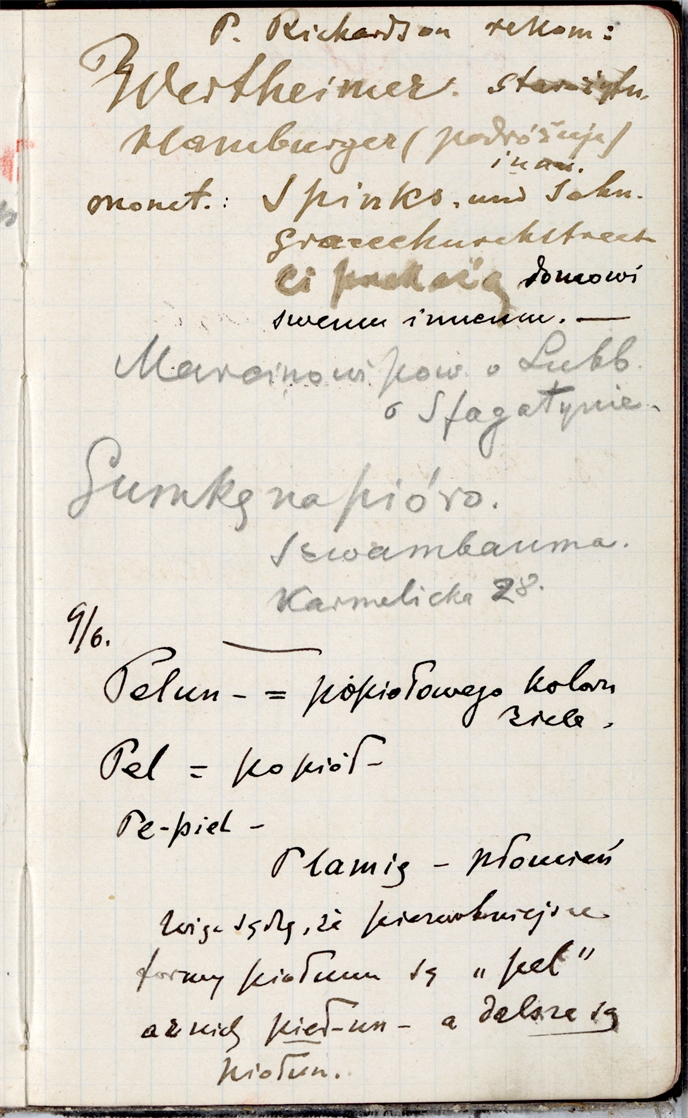 P. Richardson rekom:
Wertheimer. starożytn.
Hamburger (podróżuje)
inan.
monet.: Spinks. und Sohn.
Gracechurchstreet
ci przekażą domowi
swemu innemu. —
Marcinowi pow. o Lubb.
o Sfagatynie.
Gumkę na pióro.
Szwambauma.
Karmelicka 28.
9/6.
Pełun - = popiołowego koloru
ziele.
Pel = popiół -
Pe-pieł -
Plamię - płomień
więc sądzę, że pierwotniejsze
formy piołunu są „pel"
a z nich pieł-un - a dalsze są
piołun.